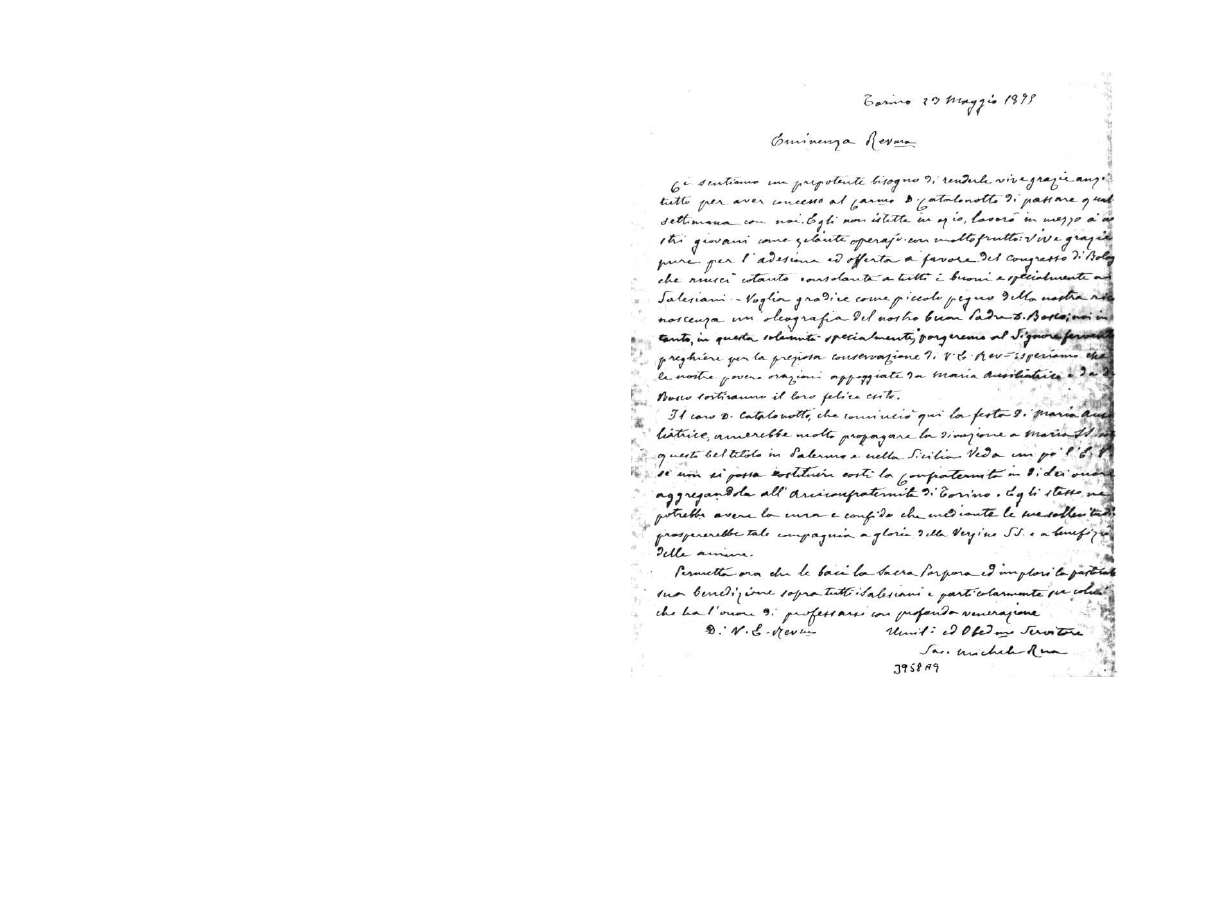 Torino 23 Maggio 1895
Eminenza Revma
Ci sentiamo un prepotente bisogno di renderle vive grazie anzi
tutto per aver concesso al Carmo D. Catalanotto di passare qual
settimana con noi. Egli non istette in ozio, lavorò in mezzo a
stri giovani come zelante operajo con molto frutto. Vive grazie
pure per l'adesione ed offerta a favore del Congresso di Bolog
che riuscì cotanto consolante a tutti i buoni e specialmente a
Salesiani. - Voglia gradire come piccolo pegno della nostra rico
noscenza un'oleografia del nostro buon Padre D. Bosco; noi in
tanto, in questa solennità specialmente, porgeremo al Signore ferventi
preghiere per la preziosa conservazione di V. E. Rev e speriamo che
le nostre povere orazioni appoggiate da Maria Ausiliatrice e da D.
Bosco sortiranno il loro felice esito.
Il caro D. Catalanotto, che cominciò qui la festa di Maria Aus
liatrice, amerebbe molto propagare la divozione a Maria SS. so
questo bel titolo in Palermo e nella Sicilia. Veda un po' l'E. V.
se non si possa costituire costì la Confraternita in di Lei onore
aggregandola all'Arciconfraternita di Torino. Egli stesso ne
potrebbe avere la cura e confido che mediante le sue sollecitudi
prospererebbe tale compagnia a gloria della Vergine SS. e a benefizio
delle anime.
Permetta ora che le baci la Sacra Porpora ed implori la pastorale
sua benedizione sopra tutti i Salesiani e particolarmente su colui
che ha l'onore di professarsi con profonda venerazione
D. V. E. Revma Umil: ed Obedmo Servitore
Sac. Michele Rua
3958 A9